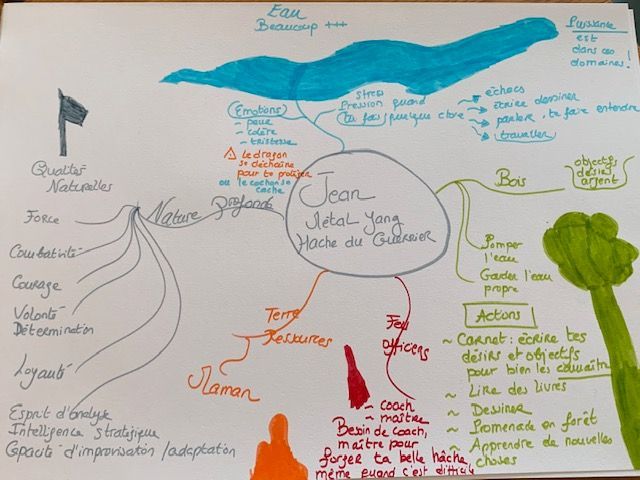 Eau
Beaucoup +++
Puissance
est
dans ces
domaines!
Emotions
~ peur
~ colère
~ tristesse
⚠ Le dragon
se déchaîne
pour te protéger
ou le cochon se
cache
stress
Pression quand
tu fais quelque chose
échecs
écrire dessiner
parler, te faire entendre
travailler
Qualités
Naturelles
Nature Profonde
Force
Combativité
Courage
Volonté
Détermination
Loyauté
Esprit d'analyse
Intelligence stratégique
Capacité d'improvisation / adaptation
Jean
Métal Yang
Hache du Guerrier
Bois
objectifs
désirs
argent
Pomper
l'eau
Garder l'eau
propre
Actions
~ Carnet : écrire tes
désirs et objectifs
pour bien les connaître
~ Lire des livres
~ Dessiner
~ Promenade en forêt
~ Apprendre de nouvelles
choses
Terre
Ressources
Maman
Feu
Officiers
~ coach
~ maître
Besoin de coach,
maître pour
forger ta belle hâche
même quand c'est difficile